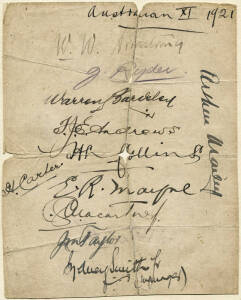 Australian XI 1921
W. W. Armstrong
J. Ryder
Warren Bardsley
T. J. E. Andrews
H. L. Collins
H. Carter
E. R. Mayne
C. Macartney
J. M. Taylor
Sydney Smith Jr
(Manager)
Arthur Mailey